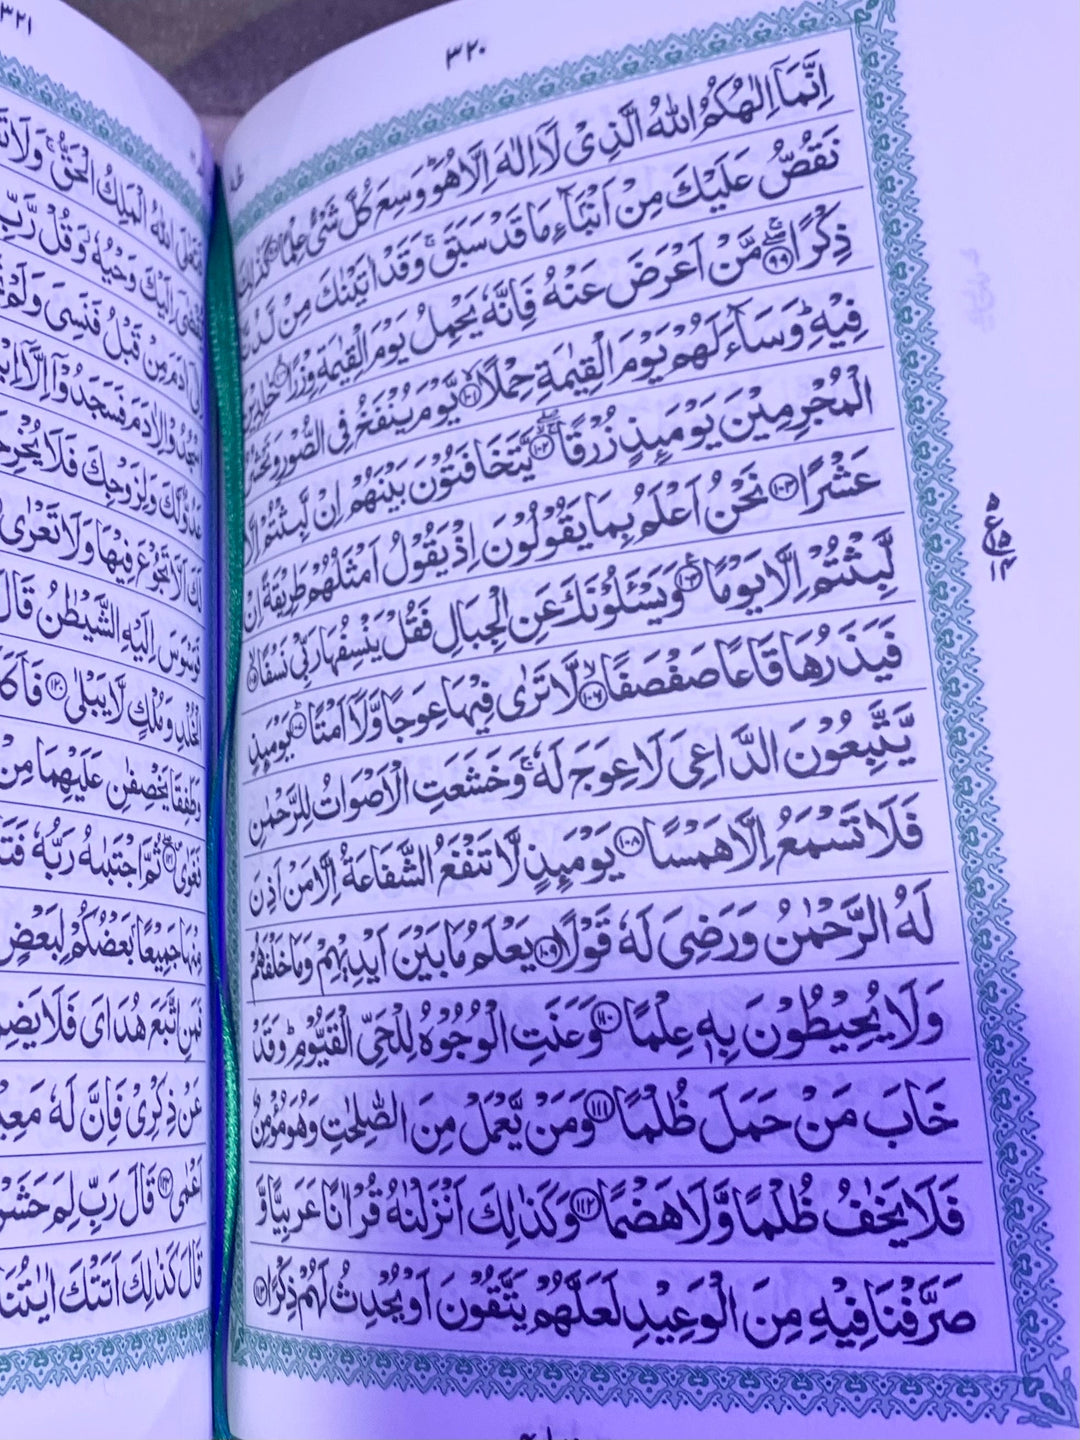 ٣٢٠
طه
اِنَّمَاۤ اِلٰهُكُمُ اللّٰهُ الَّذِىْ لَاۤ اِلٰهَ اِلَّا هُوَ ؕ وَسِعَ كُلَّ شَىْءٍ عِلْمًا ۹۸ كَذٰلِكَ
نَقُصُّ عَلَيْكَ مِنْ اَنْۢبَآءِ مَا قَدْ سَبَقَ ۚ وَقَدْ اٰتَيْنٰكَ مِنْ لَّدُنَّا
ذِكْرًا ۹۹ مَّنْ اَعْرَضَ عَنْهُ فَاِنَّهٗ يَحْمِلُ يَوْمَ الْقِيٰمَةِ وِزْرًا ۱۰۰ خٰلِدِيْنَ
فِيْهِ ؕ وَسَآءَ لَهُمْ يَوْمَ الْقِيٰمَةِ حِمْلًا ۱۰۱ يَّوْمَ يُنْفَخُ فِى الصُّوْرِ وَنَحْشُرُ
الْمُجْرِمِيْنَ يَوْمَئِذٍ زُرْقًا ۱۰۲ يَّتَخَافَتُوْنَ بَيْنَهُمْ اِنْ لَّبِثْتُمْ اِلَّا
عَشْرًا ۱۰۳ نَحْنُ اَعْلَمُ بِمَا يَقُوْلُوْنَ اِذْ يَقُوْلُ اَمْثَلُهُمْ طَرِيْقَةً اِنْ
لَّبِثْتُمْ اِلَّا يَوْمًا ۱۰۴ وَيَسْـَٔلُوْنَكَ عَنِ الْجِبَالِ فَقُلْ يَنْسِفُهَا رَبِّىْ نَسْفًا ۱۰۵
فَيَذَرُهَا قَاعًا صَفْصَفًا ۱۰۶ لَّا تَرٰى فِيْهَا عِوَجًا وَّلَاۤ اَمْتًا ۱۰۷ يَوْمَئِذٍ
يَّتَّبِعُوْنَ الدَّاعِىَ لَا عِوَجَ لَهٗ ۚ وَخَشَعَتِ الْاَصْوَاتُ لِلرَّحْمٰنِ
فَلَا تَسْمَعُ اِلَّا هَمْسًا ۱۰۸ يَوْمَئِذٍ لَّا تَنْفَعُ الشَّفَاعَةُ اِلَّا مَنْ اَذِنَ
لَهُ الرَّحْمٰنُ وَرَضِىَ لَهٗ قَوْلًا ۱۰۹ يَعْلَمُ مَا بَيْنَ اَيْدِيْهِمْ وَمَا خَلْفَهُمْ
وَلَا يُحِيْطُوْنَ بِهٖ عِلْمًا ۱۱۰ وَعَنَتِ الْوُجُوْهُ لِلْحَىِّ الْقَيُّوْمِ ؕ وَقَدْ
خَابَ مَنْ حَمَلَ ظُلْمًا ۱۱۱ وَمَنْ يَّعْمَلْ مِنَ الصّٰلِحٰتِ وَهُوَ مُؤْمِنٌ
فَلَا يَخٰفُ ظُلْمًا وَّلَا هَضْمًا ۱۱۲ وَكَذٰلِكَ اَنْزَلْنٰهُ قُرْاٰنًا عَرَبِيًّا وَّ
صَرَّفْنَا فِيْهِ مِنَ الْوَعِيْدِ لَعَلَّهُمْ يَتَّقُوْنَ اَوْ يُحْدِثُ لَهُمْ ذِكْرًا ۱۱۳
٣٢١
فَتَعٰلَى اللّٰهُ الْمَلِكُ الْحَقُّ ۚ وَلَا
اِلَيْكَ وَحْيُهٗ ۫ وَقُلْ رَّبِّ
اِلٰىۤ اٰدَمَ مِنْ قَبْلُ فَنَسِىَ وَلَمْ
اسْجُدُوْا لِاٰدَمَ فَسَجَدُوْۤا اِلَّاۤ
عَدُوٌّ لَّكَ وَلِزَوْجِكَ فَلَا
لَكَ اَلَّا تَجُوْعَ فِيْهَا وَلَا تَعْرٰى
فَوَسْوَسَ اِلَيْهِ الشَّيْطٰنُ قَالَ
الْخُلْدِ وَمُلْكٍ لَّا يَبْلٰى ۱۲۰
وَطَفِقَا يَخْصِفٰنِ عَلَيْهِمَا مِنْ
فَغَوٰى ۱۲۱ ثُمَّ اجْتَبٰهُ رَبُّهٗ
مِنْهَا جَمِيْعًۢا بَعْضُكُمْ لِبَعْضٍ
فَمَنِ اتَّبَعَ هُدَاىَ فَلَا
عَنْ ذِكْرِىْ فَاِنَّ لَهٗ
اَعْمٰى ۱۲۴ قَالَ رَبِّ لِمَ
قَالَ كَذٰلِكَ اَتَتْكَ اٰيٰتُنَا